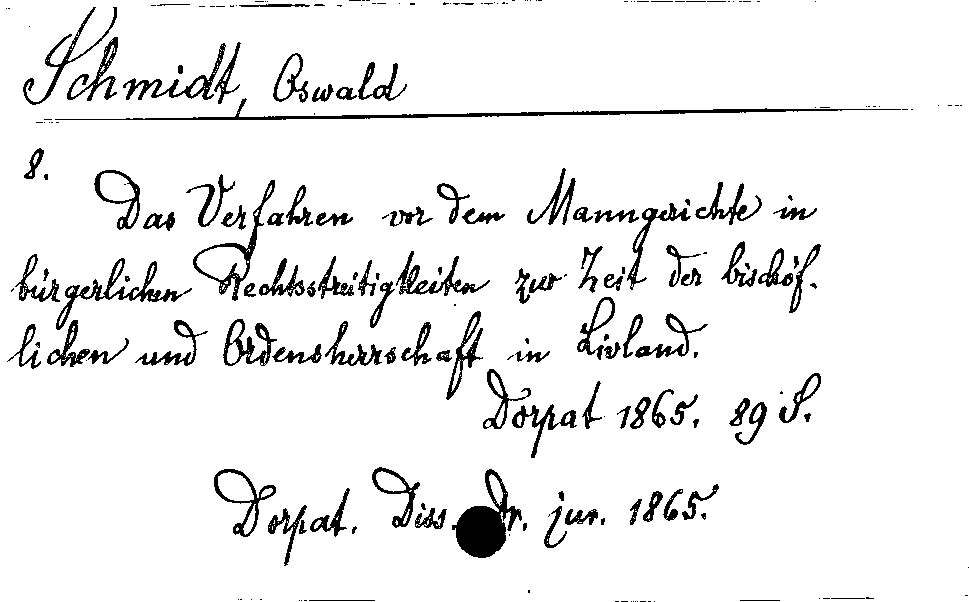 Schmidt, Oswald
8.
Das Verfahren vor dem Manngerichte in
bürgerlichen Rechtsstreitigkeiten zur Zeit der bischöf-
lichen und Ordensherrschaft in Livland.
Dorpat 1865. 89 S.
Dorpat. Diss. Dr. jur. 1865.